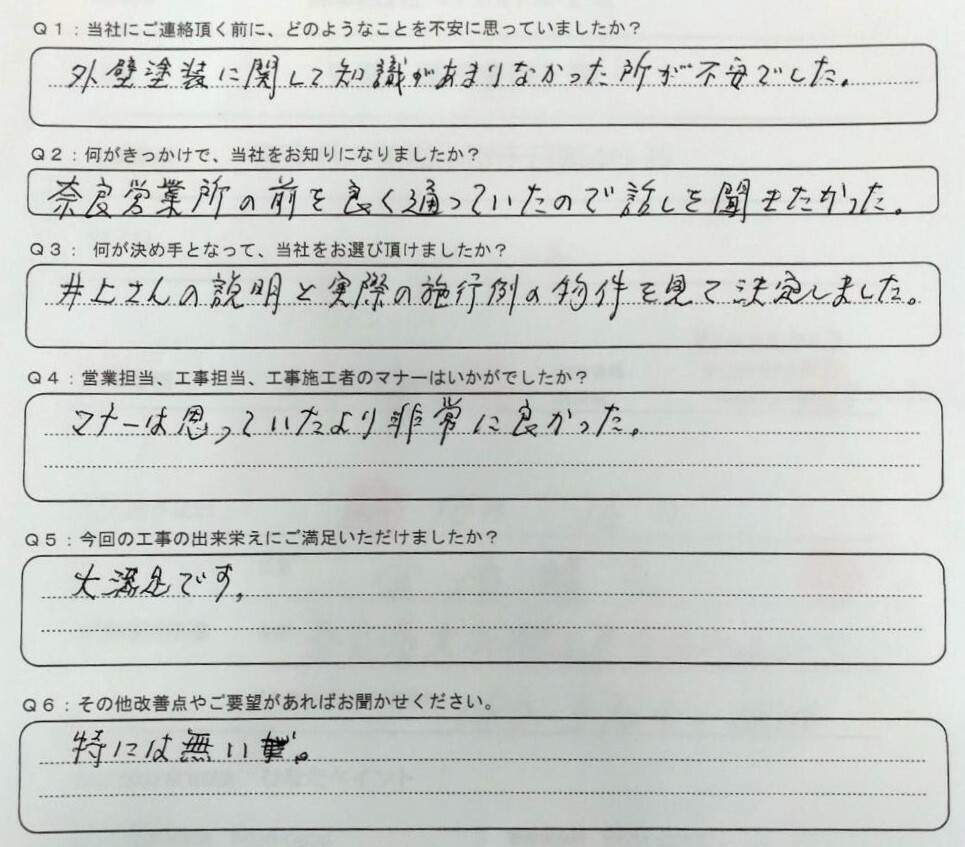 Q1：当社にご連絡頂く前に、どのようなことを不安に思っていましたか？
外壁塗装に関して知識があまりなかった所が不安でした。
Q2：何がきっかけで、当社をお知りになりましたか？
奈良営業所の前を良く通っていたので話しを聞きたかった。
Q3： 何が決め手となって、当社をお選び頂けましたか？
井上さんの説明と実際の施行例の物件を見て決定しました。
Q4：営業担当、工事担当、工事施工者のマナーはいかがでしたか？
マナーは思っていたより非常に良かった。
Q5：今回の工事の出来栄えにご満足いただけましたか？
大満足です。
Q6：その他改善点やご要望があればお聞かせください。
特には無い。